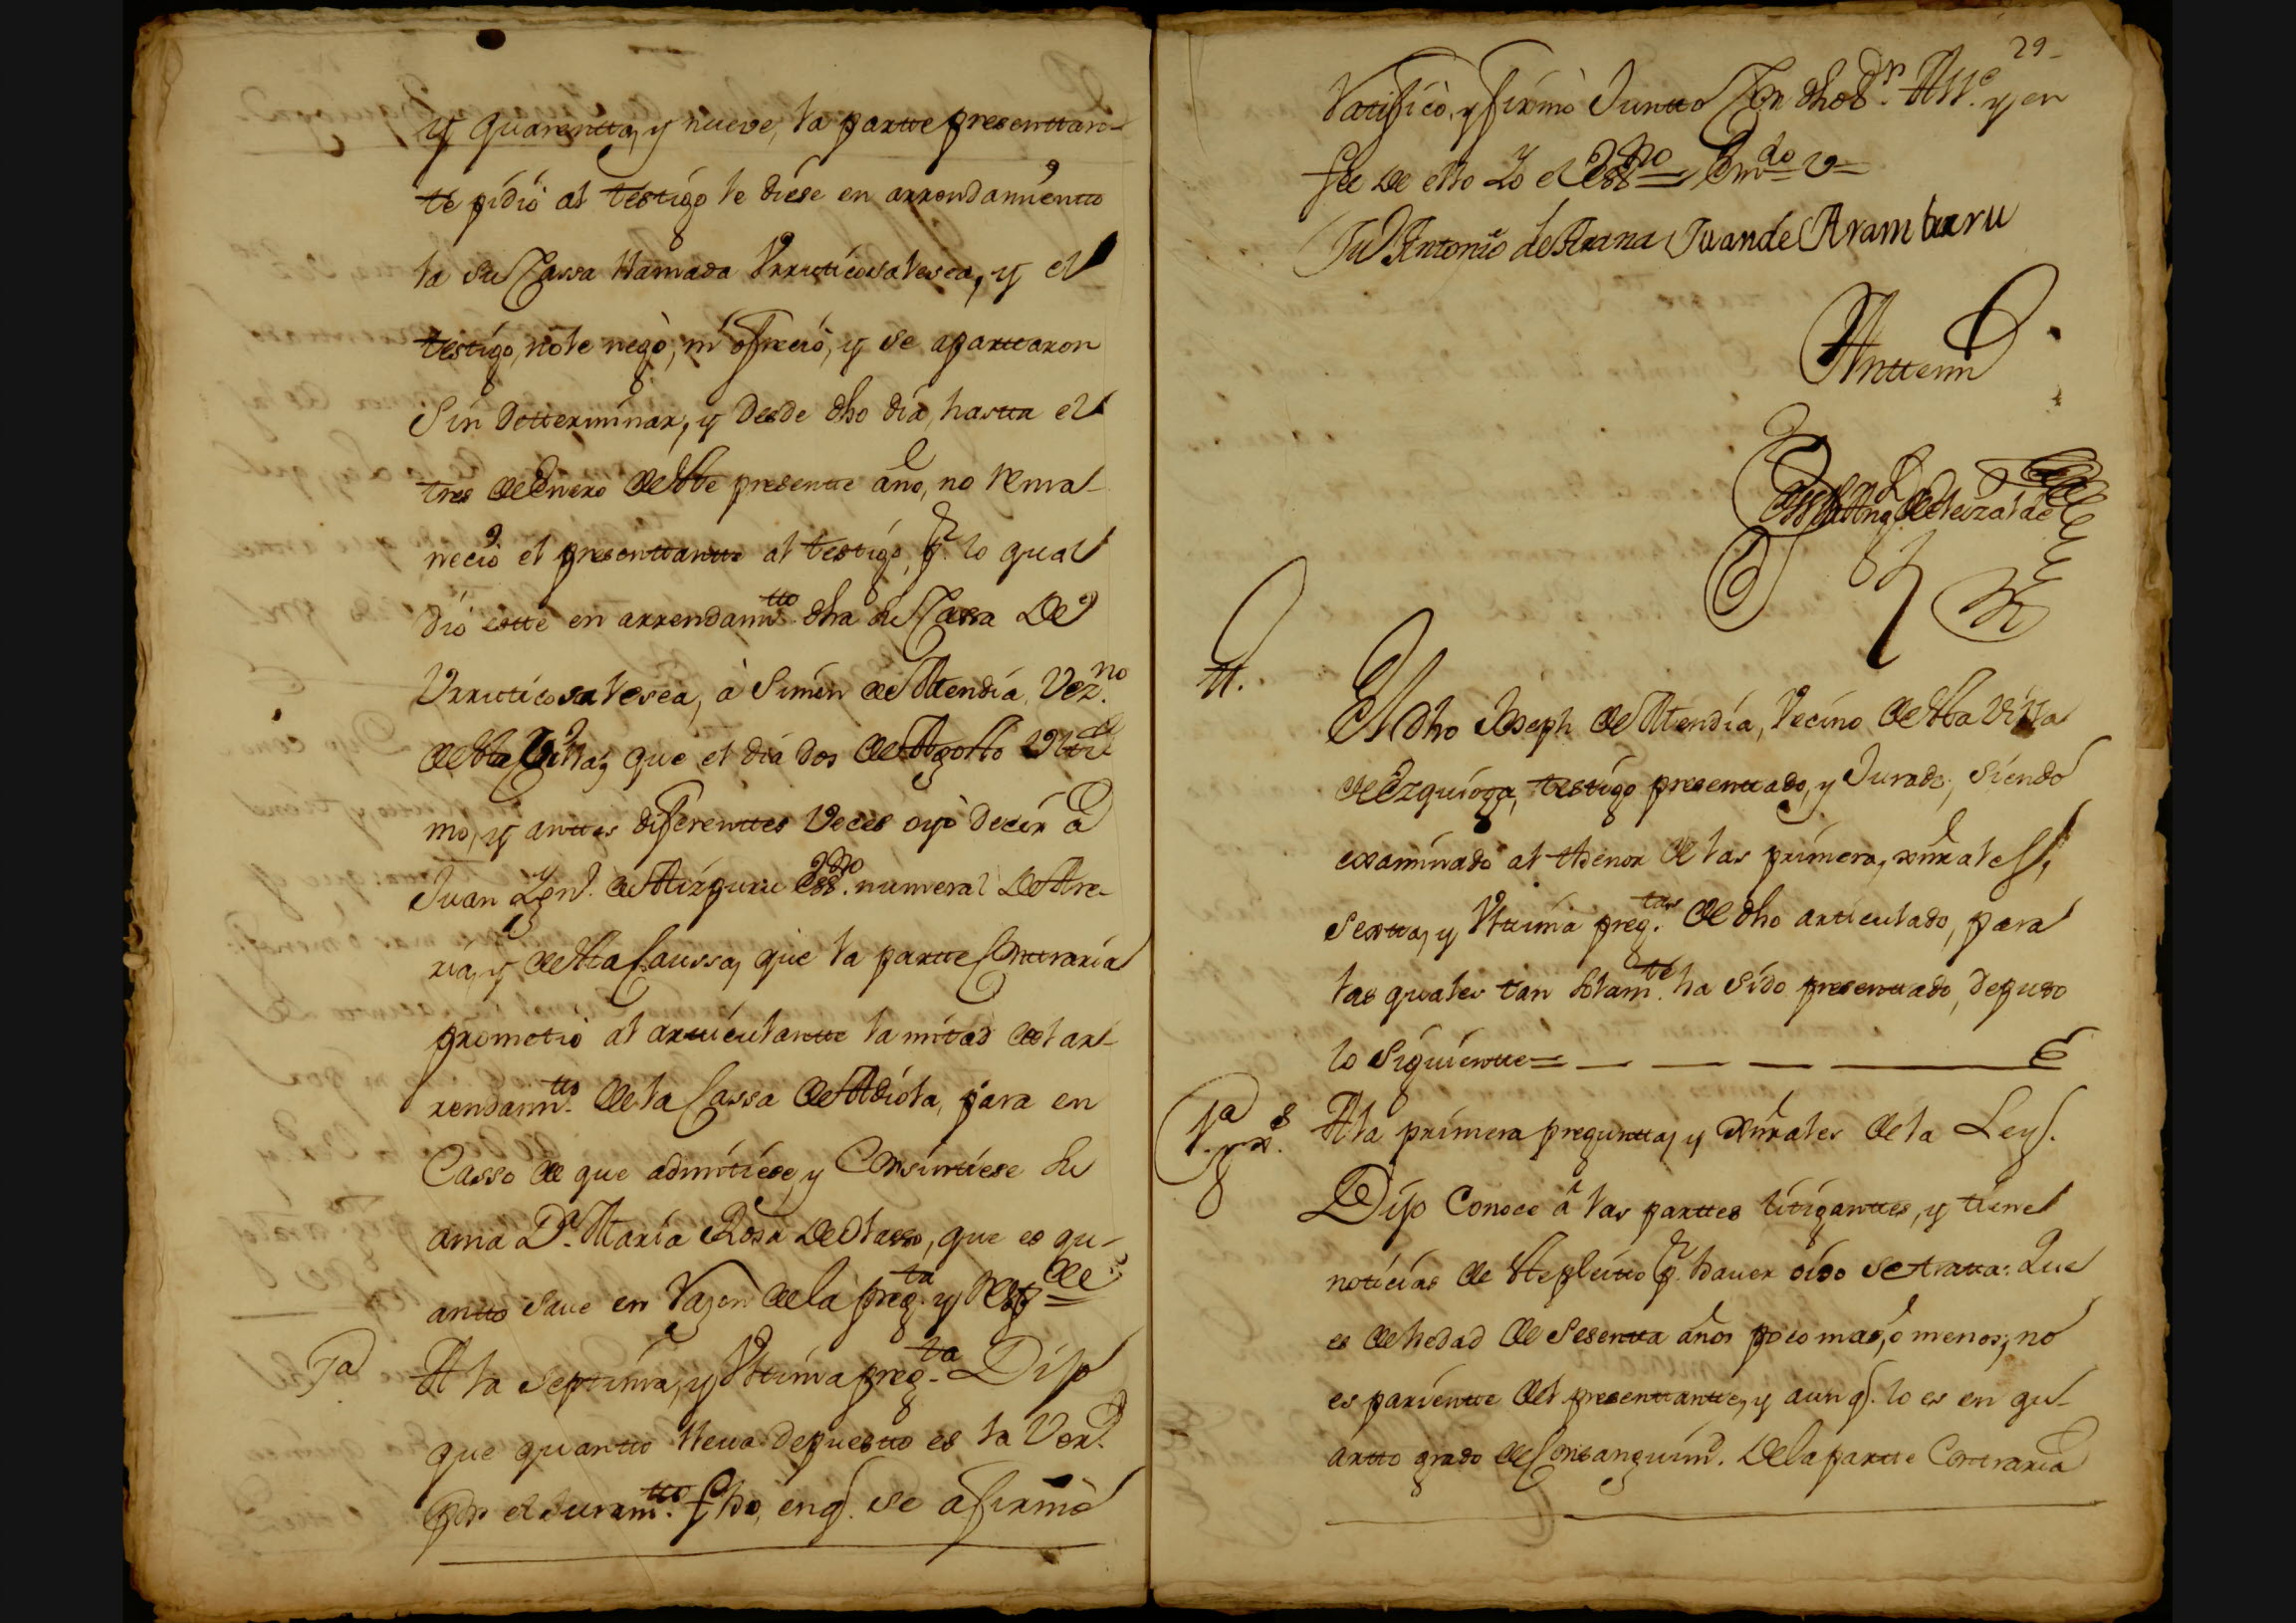 y quarentta, y nueve, la partte presenttan-
te pidió al testigo le diese en arrendamientto
la su Cassa llamada Vrruticosalesea, y el
testigo, no le negò, ni ofreció, y se aparttaron
Sin Detterminar, y desde dho dia, hastta el
tres de Enero de este presentte año, no rema-
neció el presenttantte al testigo, p.r lo qual
dió estte en arrendam.tto dha su Cassa de
Vrruticosalesea, à Simón de Mendia, Vez.no
de esta Villa; que el dia dos de Agosto Vlti-
mo, y anttes diferenttes Veces oyò decir a
Juan Ygn.o de Aizpuru ess.no numeral de Are-
ria, y de esta Caussa, que la partte Conttraria
prometiò al articulantte la mitad del ar-
rendam.tto de la Cassa de Adiola, para en
Casso de que admitiese, y Consinttiese su
ama D.a Maria Rosa de Olasso, que es qu-
antto save en razon de la preg.ta y resp.de
7a A la septtima, y Vlttima preg.ta Dijo
que quantto lleva depuestto es la Ver.d
por el Juram.tto fho, en q. se afirmò
29-
Ratificò, y firmò Juntto Con dho S.r All.e y en
fee de ello Yo el Ess.no Em.do V
Ju.o Antonio de Arana Juan de Aramburu
Antte mi
de Eleizalde
El dho Joseph de Mendia, Vecino de esta Villa
de Ezquioga, testigo presenttado, y Jurado, siendo
examinado al thenor de las primera, xñrales,
sextta, y Vlttima preg.tas de dho articulado, para
las quales tan solam.te ha sido presenttado, depuso
lo siguientte=
1.a y x.s A la primera pregunta, y xñrales de la Ley.
Dijo Conoce à las parttes litiganttes, y tiene
noticias de este pleitto p.r haver oido se tratta: Que
es de hedad de sesentta años poco mas, o menos; no
es parientte del presenttantte, y aunq. lo es en qu-
artto grado de Consanguin.d de la partte Conttraria